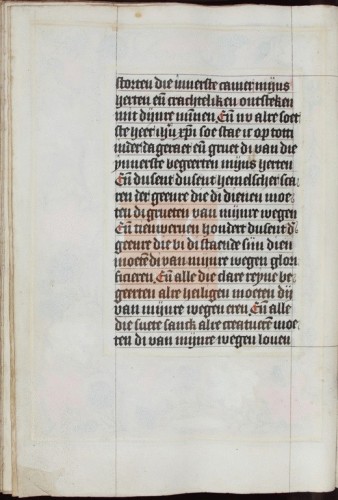 storten die inuerste camer mijns
herten eñ crachteliken ontsteken
mit dijnre minnen. Eñ nv alre soet
ste heer ihū xp̄i soe stae ic op totti
inder dageraet eñ gruet di van die
ynnerste begeerten mijns herten
Eñ dusent dusent hemelscher sca
ren der geenre die di dienen moe
ten di grueten van mijnre wegen
Eñ tienweruen hondert dusent d̄
geenre die bi di staende sijn dien
moetē di van mijnre wegen glori
ficieren. Eñ alle die clare reyne be
geerten alre heiligen moeten dij
van mijnre wegen eren. Eñ alle
die suete sanck alre creaturē moe
ten di van mijnre wegen louen